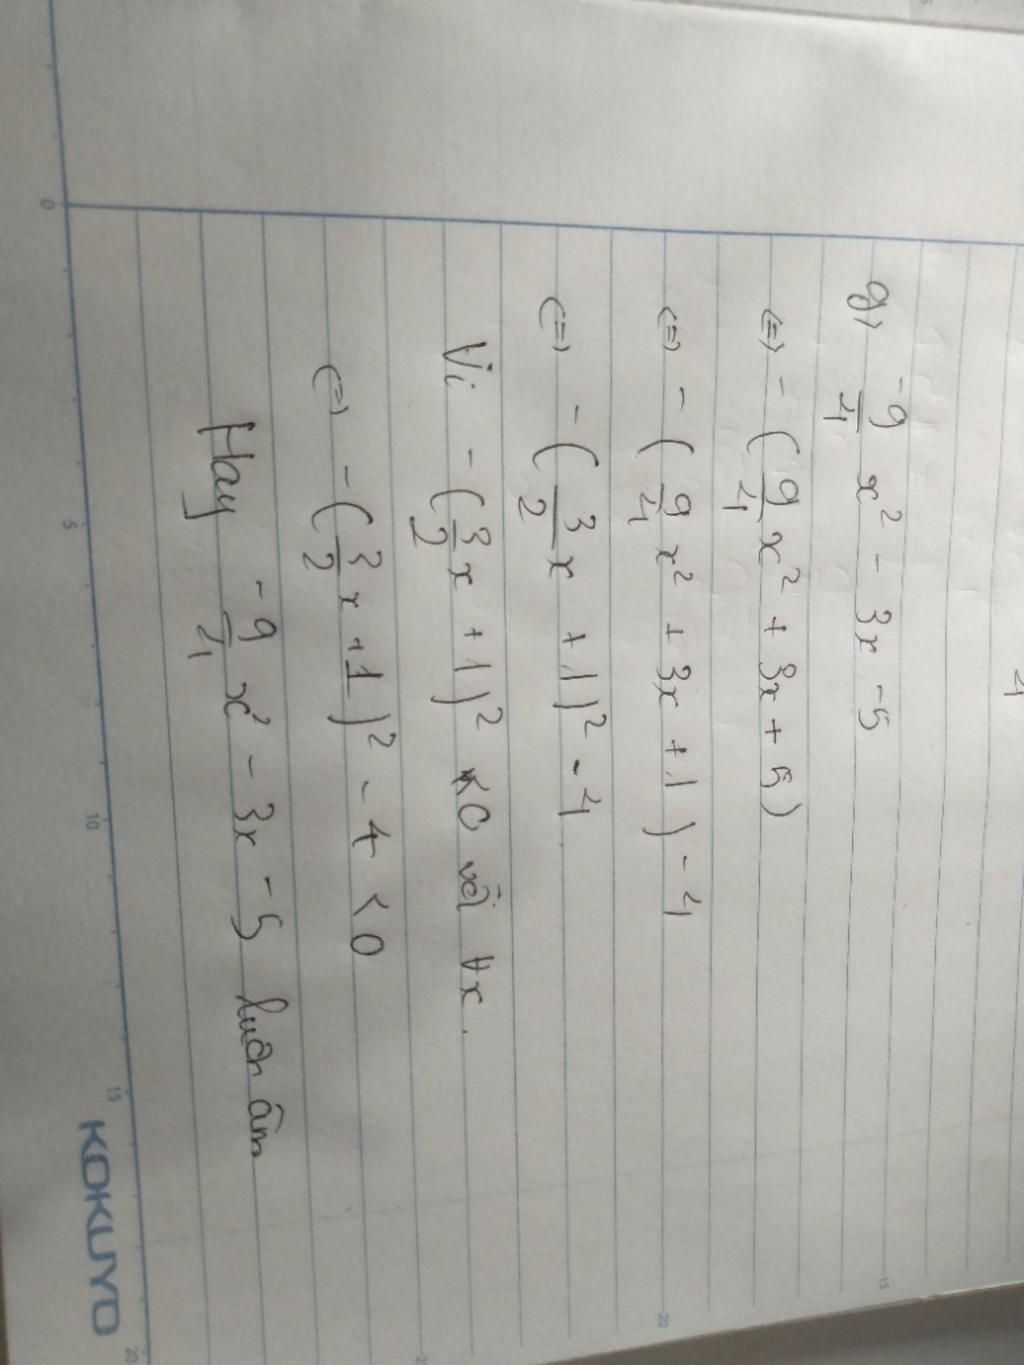 g, -9/4 x² - 3x - 5
(=) - (9/4 x² + 3x + 5)
(=) - (9/4 x² + 3x + 1) - 4
(=) - (3/2 x + 1)² - 4
Vì - (3/2 x + 1)² ≤ 0 với ∀x.
(=) - (3/2 x + 1)² - 4 < 0
Hay -9/4 x² - 3x - 5 luôn âm
0 5 10 15 20
KOKUYO